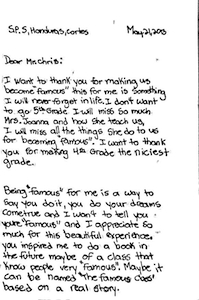 S.P.S, Honduras, cortes May, 21, 2013
Dear Mr. chris:
I want to thank you for making us
become "famous" this for me is something
I will never forget in life. I don't want
to go 5th Grade I will miss so much
Mrs. Joanna and how she teach us,
I will miss all the things she do to us
for becoming "famous". I want to thank
you for making 4th Grade the niciest
grade.
Being "famous" for me is a way to
say you do it, you do your dreams
cometrue and I wan't to tell you
you're "famous" and I apreciate so
much for this beautiful experience,
you inspired me to do a book in
the future maybe of a class that
how people very "famous". Maybe it
can be named "The famous class"
based on a real story.